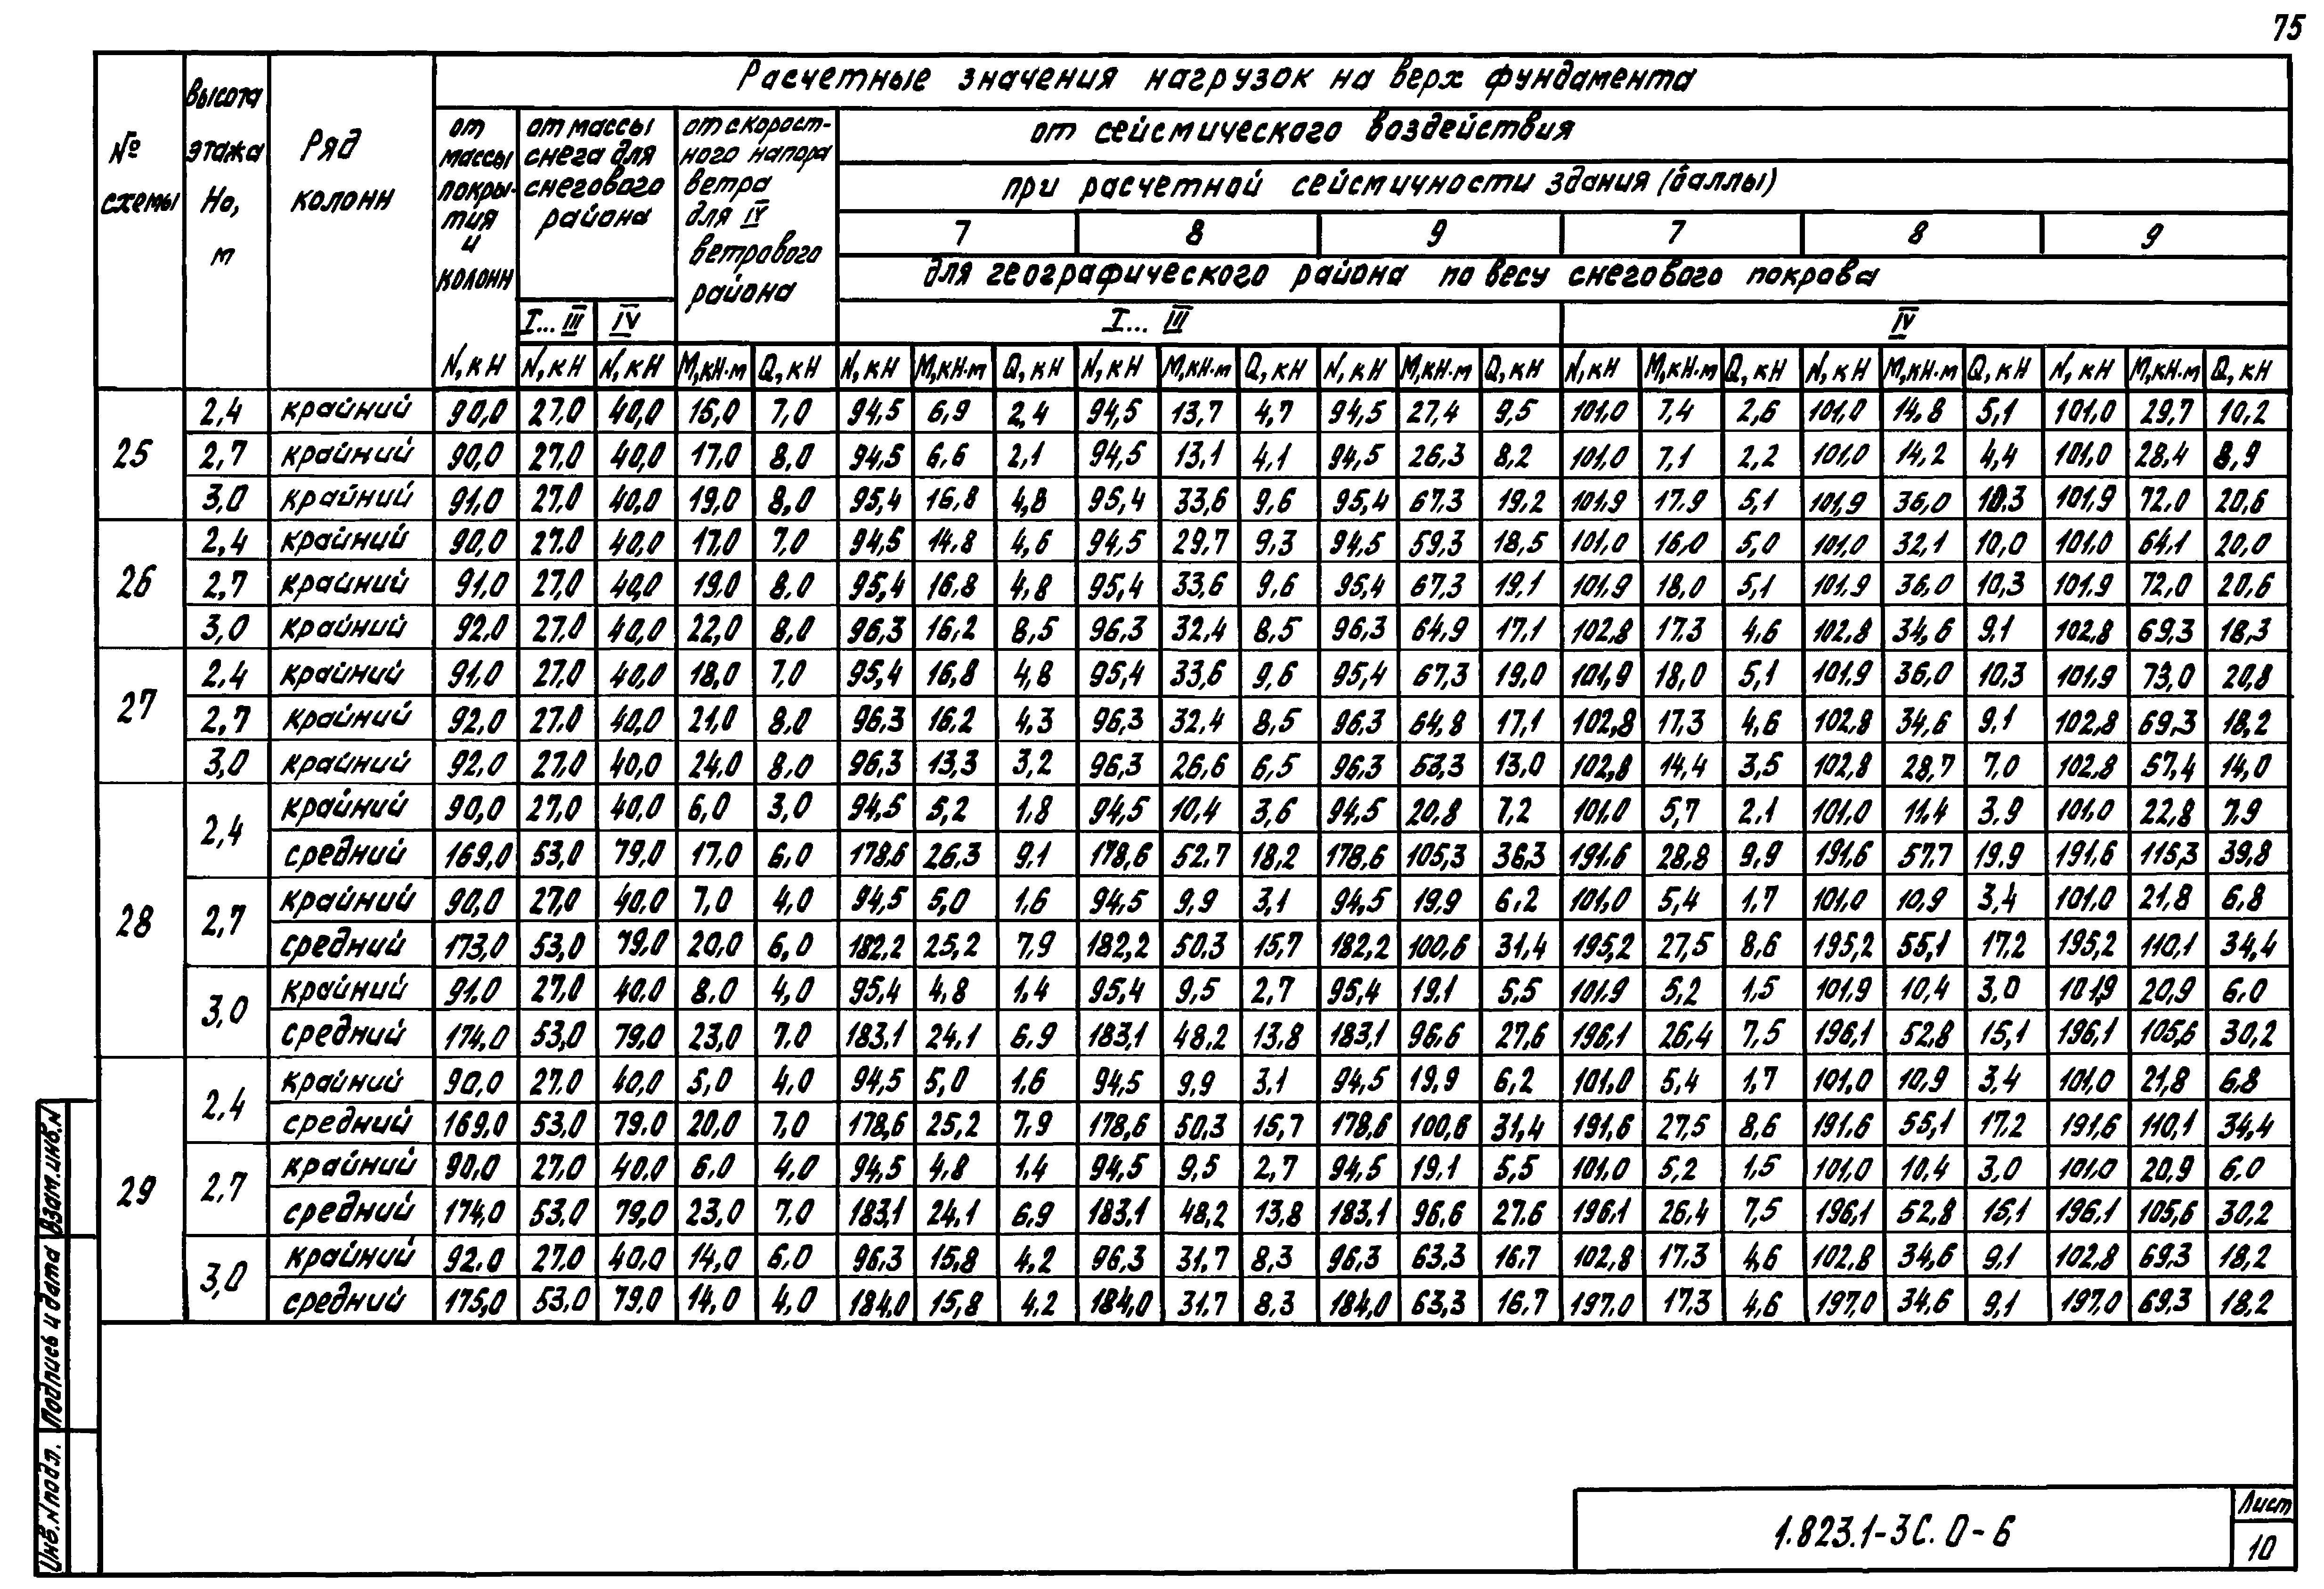 75
Расчетные значения нагрузок на верх фундамента
№ схемы
высота этажа Но, м
Ряд колонн
от массы покрытия и колонн
от массы снега для снегового района
от скоростного напора ветра для IV ветрового района
от сейсмического воздействия
при расчетной сейсмичности здания (баллы)
7 8 9 7 8 9
для географического района по весу снегового покрова
I... III IV I... III IV
N,кН N,кН N,кН М,кН·м Q,кН N,кН М,кН·м Q,кН N,кН М,кН·м Q,кН N,кН М,кН·м Q,кН N,кН М,кН·м Q,кН N,кН М,кН·м Q,кН N,кН М,кН·м Q,кН
25 2,4 крайний 90,0 27,0 40,0 15,0 7,0 94,5 6,9 2,4 94,5 13,7 4,7 94,5 27,4 9,5 101,0 7,4 2,6 101,0 14,8 5,1 101,0 29,7 10,2
2,7 крайний 90,0 27,0 40,0 17,0 8,0 94,5 6,6 2,1 94,5 13,1 4,1 94,5 26,3 8,2 101,0 7,1 2,2 101,0 14,2 4,4 101,0 28,4 8,9
3,0 крайний 91,0 27,0 40,0 19,0 8,0 95,4 16,8 4,8 95,4 33,6 9,6 95,4 67,3 19,2 101,9 17,9 5,1 101,9 36,0 10,3 101,9 72,0 20,6
26 2,4 крайний 90,0 27,0 40,0 17,0 7,0 94,5 14,8 4,6 94,5 29,7 9,3 94,5 59,3 18,5 101,0 16,0 5,0 101,0 32,1 10,0 101,0 64,1 20,0
2,7 крайний 91,0 27,0 40,0 19,0 8,0 95,4 16,8 4,8 95,4 33,6 9,6 95,4 67,3 19,1 101,9 18,0 5,1 101,9 36,0 10,3 101,9 72,0 20,6
3,0 крайний 92,0 27,0 40,0 22,0 8,0 96,3 16,2 8,5 96,3 32,4 8,5 96,3 64,9 17,1 102,8 17,3 4,6 102,8 34,6 9,1 102,8 69,3 18,3
27 2,4 крайний 91,0 27,0 40,0 18,0 7,0 95,4 16,8 4,8 95,4 33,6 9,6 95,4 67,3 19,0 101,9 18,0 5,1 101,9 36,0 10,3 101,9 73,0 20,8
2,7 крайний 92,0 27,0 40,0 21,0 8,0 96,3 16,2 4,3 96,3 32,4 8,5 96,3 64,8 17,1 102,8 17,3 4,6 102,8 34,6 9,1 102,8 69,3 18,2
3,0 крайний 92,0 27,0 40,0 24,0 8,0 96,3 13,3 3,2 96,3 26,6 6,5 96,3 53,3 13,0 102,8 14,4 3,5 102,8 28,7 7,0 102,8 57,4 14,0
28 2,4 крайний 90,0 27,0 40,0 6,0 3,0 94,5 5,2 1,8 94,5 10,4 3,6 94,5 20,8 7,2 101,0 5,7 2,1 101,0 11,4 3,9 101,0 22,8 7,9
средний 169,0 53,0 79,0 17,0 6,0 178,6 26,3 9,1 178,6 52,7 18,2 178,6 105,3 36,3 191,6 28,8 9,9 191,6 57,7 19,9 191,6 115,3 39,8
2,7 крайний 90,0 27,0 40,0 7,0 4,0 94,5 5,0 1,6 94,5 9,9 3,1 94,5 19,9 6,2 101,0 5,4 1,7 101,0 10,9 3,4 101,0 21,8 6,8
средний 173,0 53,0 79,0 20,0 6,0 182,2 25,2 7,9 182,2 50,3 15,7 182,2 100,6 31,4 195,2 27,5 8,6 195,2 55,1 17,2 195,2 110,1 34,4
3,0 крайний 91,0 27,0 40,0 8,0 4,0 95,4 4,8 1,4 95,4 9,5 2,7 95,4 19,1 5,5 101,9 5,2 1,5 101,9 10,4 3,0 101,9 20,9 6,0
средний 174,0 53,0 79,0 23,0 7,0 183,1 24,1 6,9 183,1 48,2 13,8 183,1 96,6 27,6 196,1 26,4 7,5 196,1 52,8 15,1 196,1 105,6 30,2
29 2,4 крайний 90,0 27,0 40,0 5,0 4,0 94,5 5,0 1,6 94,5 9,9 3,1 94,5 19,9 6,2 101,0 5,4 1,7 101,0 10,9 3,4 101,0 21,8 6,8
средний 169,0 53,0 79,0 20,0 7,0 178,6 25,2 7,9 178,6 50,3 15,7 178,6 100,6 31,4 191,6 27,5 8,6 191,6 55,1 17,2 191,6 110,1 34,4
2,7 крайний 90,0 27,0 40,0 6,0 4,0 94,5 4,8 1,4 94,5 9,5 2,7 94,5 19,1 5,5 101,0 5,2 1,5 101,0 10,4 3,0 101,0 20,9 6,0
средний 174,0 53,0 79,0 23,0 7,0 183,1 24,1 6,9 183,1 48,2 13,8 183,1 96,6 27,6 196,1 26,4 7,5 196,1 52,8 15,1 196,1 105,6 30,2
3,0 крайний 92,0 27,0 40,0 14,0 6,0 96,3 15,8 4,2 96,3 31,7 8,3 96,3 63,3 16,7 102,8 17,3 4,6 102,8 34,6 9,1 102,8 69,3 18,2
средний 175,0 53,0 79,0 14,0 4,0 184,0 15,8 4,2 184,0 31,7 8,3 184,0 63,3 16,7 197,0 17,3 4,6 197,0 34,6 9,1 197,0 69,3 18,2
Инв.№подл. Подпись и дата Взам.инв.№
1.823.1-3С.0-6
Лист
10